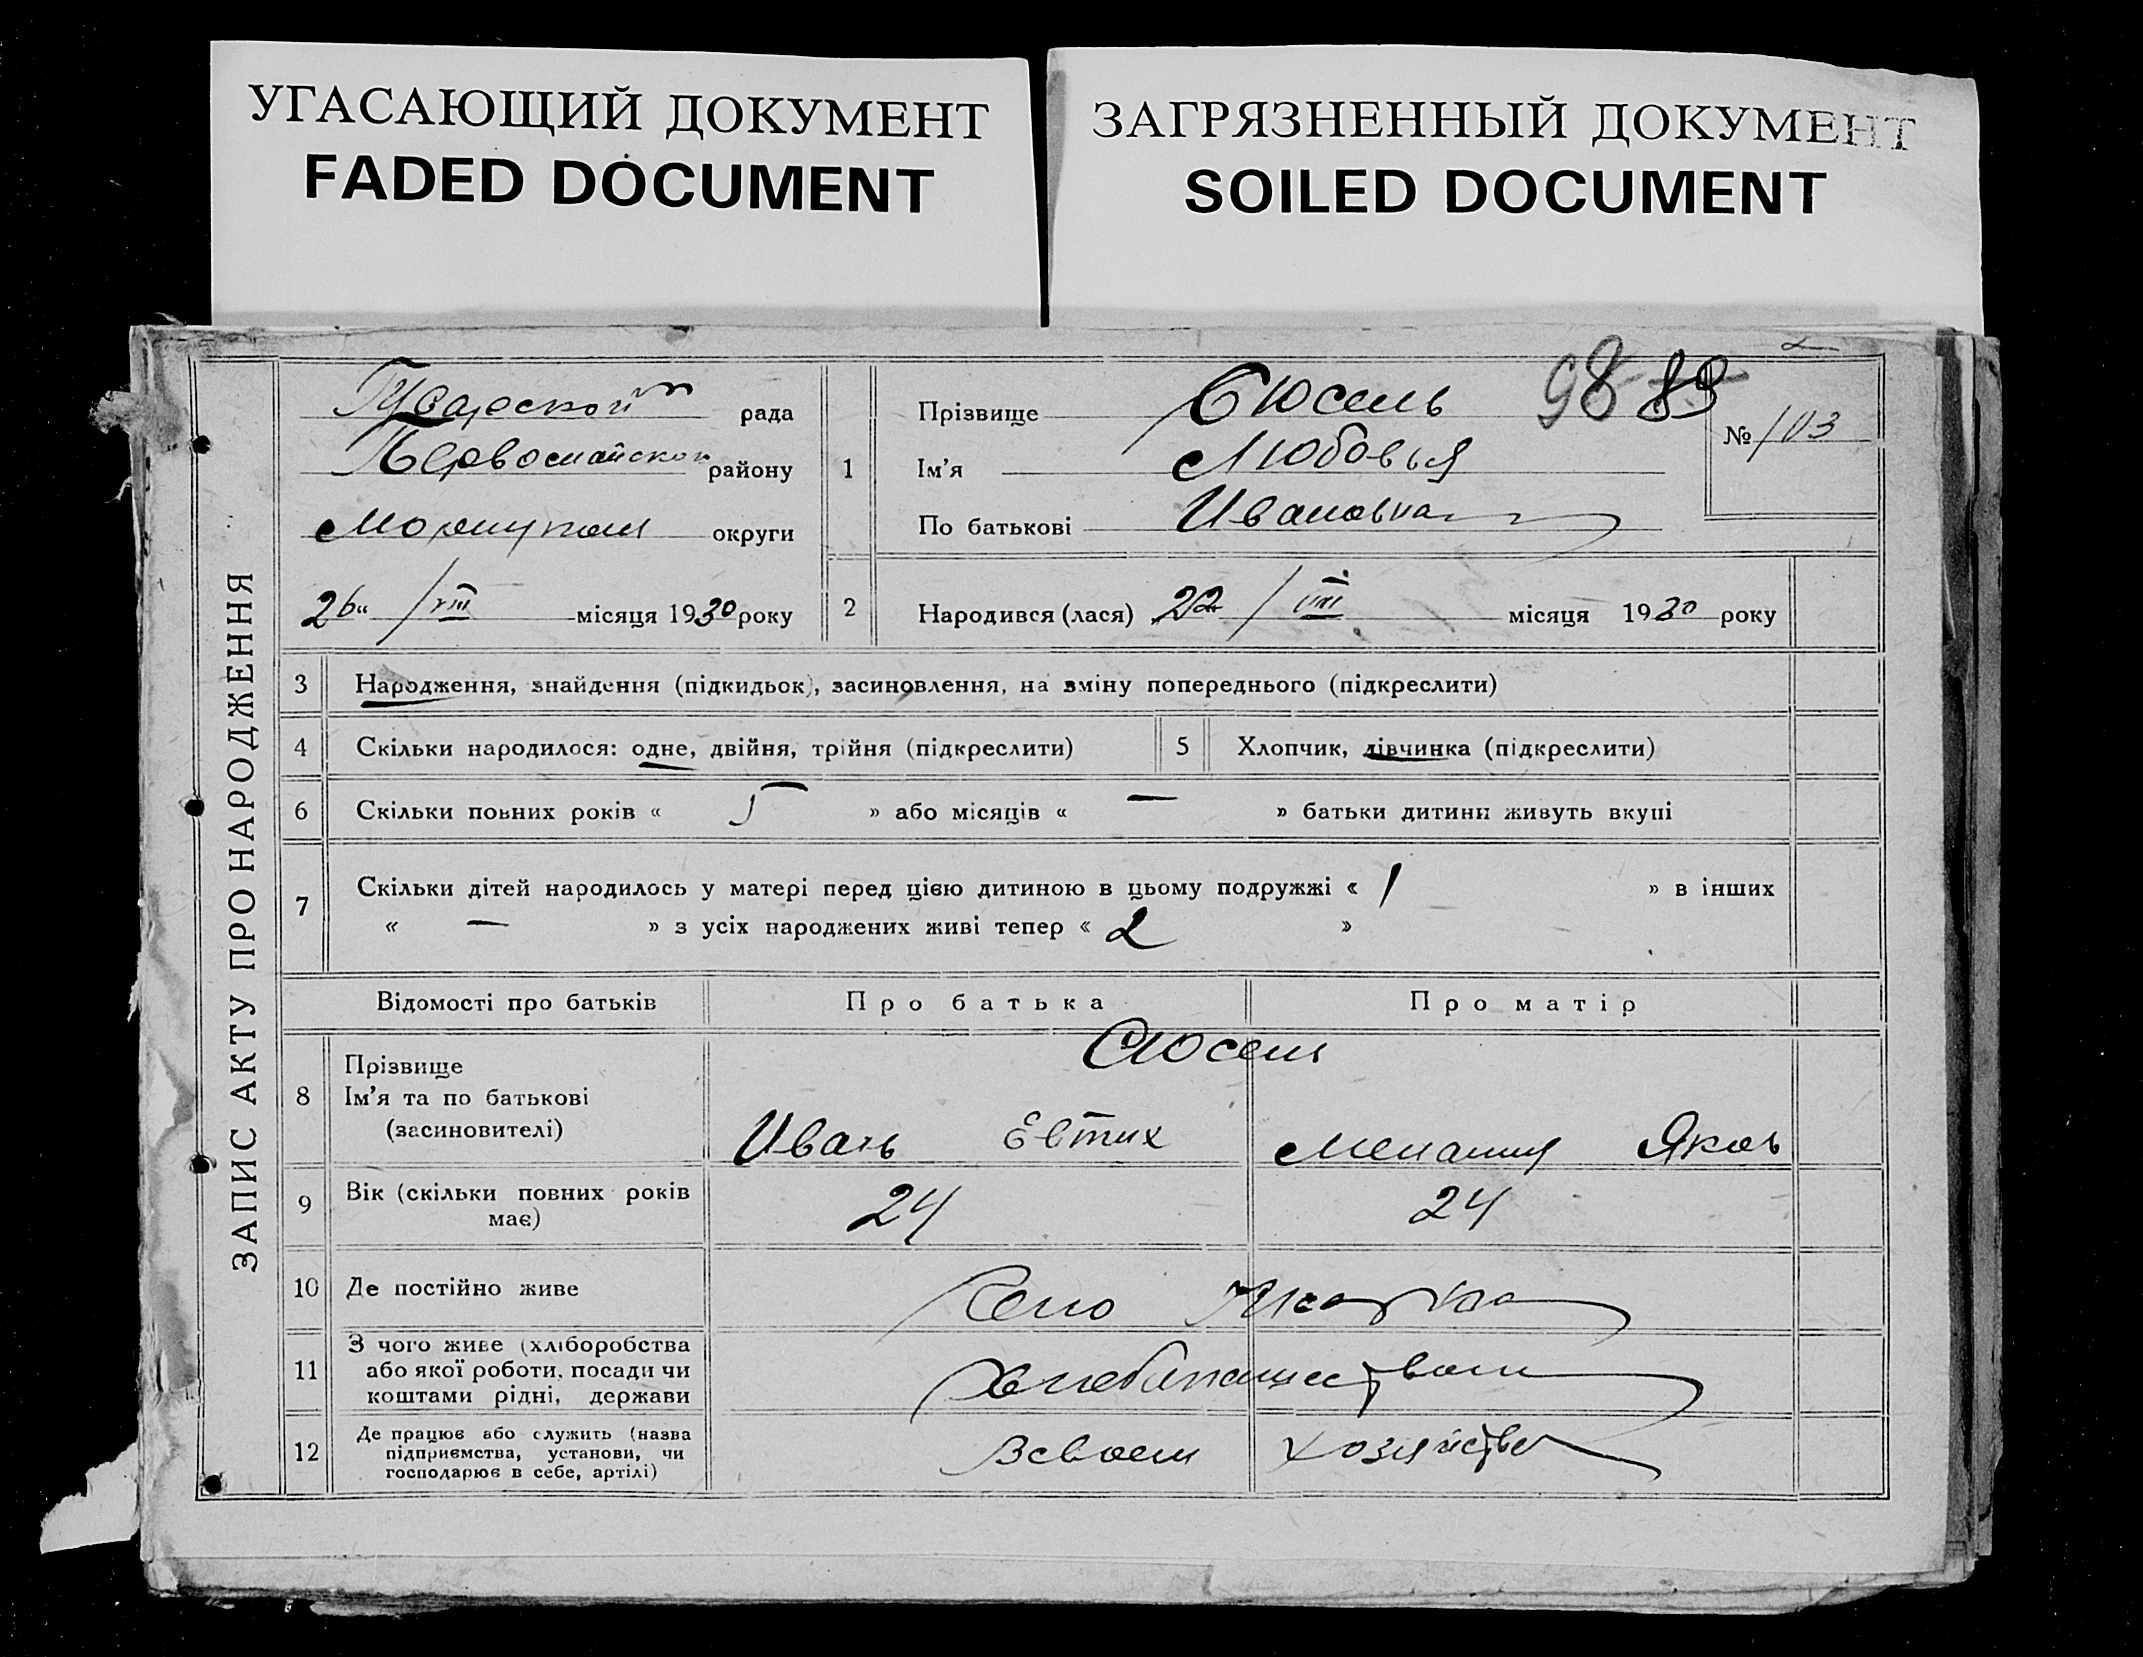 УГАСАЮЩИЙ ДОКУМЕНТ
FADED DOCUMENT
ЗАГРЯЗНЕННЫЙ ДОКУМЕНТ
SOILED DOCUMENT
ЗАПИС АКТУ ПРО НАРОДЖЕННЯ
рада
Первомайской району
округи
26 / VIII місяця 1930 року
98 89
№ 103
1 Прізвище Сюсель
Ім'я Любовья
По батькові Ивановна
2 Народився (лася) 22 / VIII місяця 1930 року
3 Народження, знайдення (підкидьок), засиновлення, на зміну попереднього (підкреслити)
4 Скільки народилося: одне, двійня, трійня (підкреслити) 5 Хлопчик, дівчинка (підкреслити)
6 Скільки повних років « 5 » або місяців « — » батьки дитини живуть вкупі
7 Скільки дітей народилось у матері перед цією дитиною в цьому подружжі « 1 » в інших
« — » з усіх народжених живі тепер « 2 »
Відомості про батьків Про батька Про матір
8 Прізвище Сюсель
Ім'я та по батькові
(засиновителі) Иван Евтих Мелания Яков
9 Вік (скільки повних років
має) 24 24
10 Де постійно живе Село
11 З чого живе (хліборобства
або якої роботи, посади чи
коштами рідні, держави Хлебопашеством
12 Де працює або служить (назва
підприємства, установи, чи
господарює в себе, артілі) В своем хозяйстве